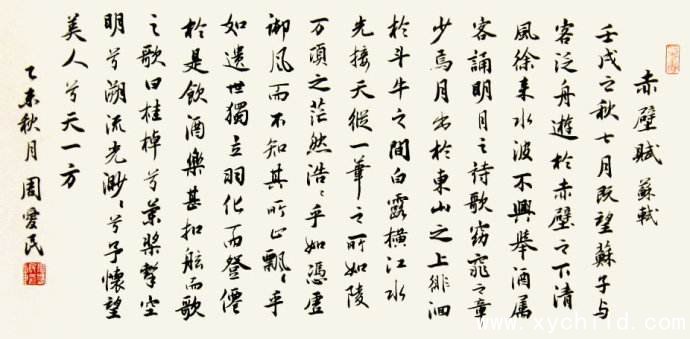 赤壁賦 蘇軾
壬戌之秋七月既望蘇子与
客泛舟遊於赤壁之下清
風徐来水波不興舉酒属
客誦明月之詩歌窈窕之章
少焉月出於東山之上徘徊
於斗牛之間白露横江水
光接天縱一葦之所如陵
万頃之茫然浩〻乎如憑虚
御風而不知其所止飄〻乎
如遺世獨立羽化而登僊
於是飲酒樂甚扣舷而歌
之歌曰桂棹兮蘭槳擊空
明兮溯流光渺〻兮予懷望
美人兮天一方
乙未秋月 周愛民